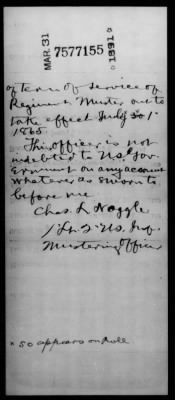 MAR 31
7577155
1891
of term of service of
Regiment. Muster out to
take effect July 30 1
1865
This officer is not
indebted to U.S. Gov
ernment on any account
whatever as sworn to
before me
Chas. L Noggle
1 Lt & U.S. Inf.
Mustering Officer
x so appears on Role